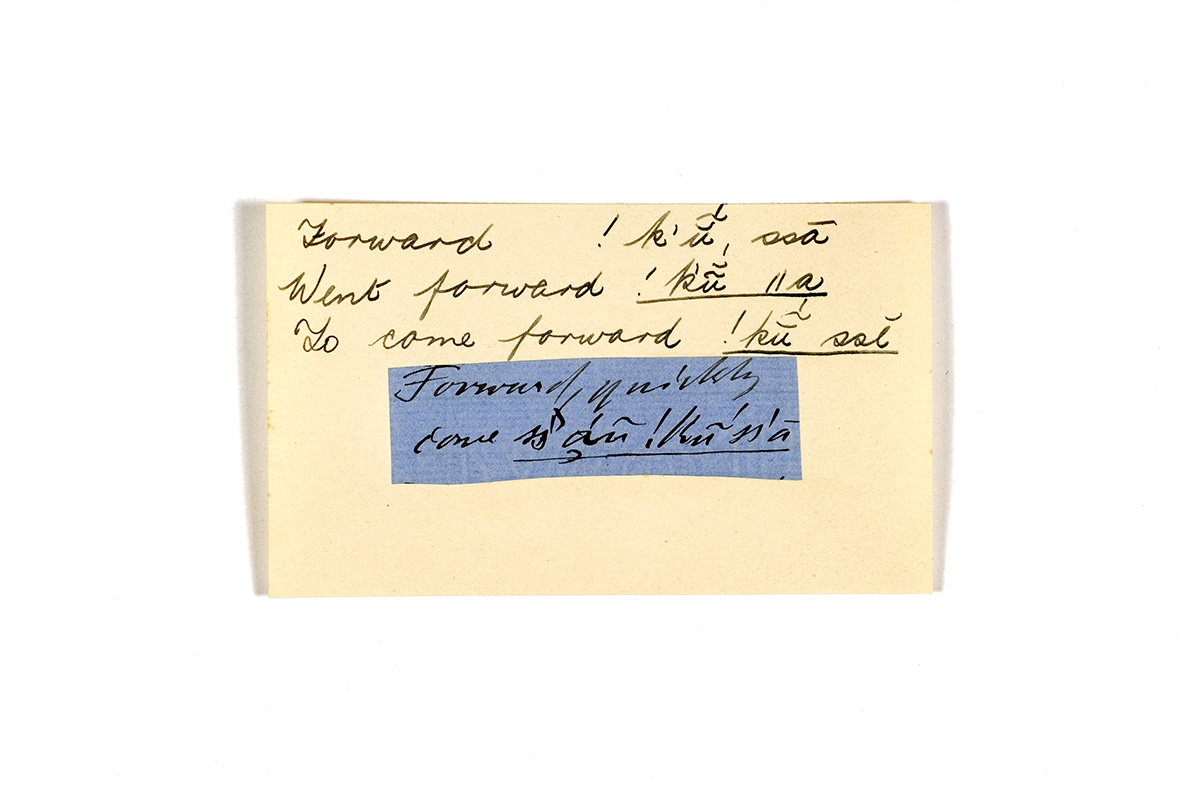 Forward ! k'ṹ, ssā
Went forward ! k'ṹ ǁa
To come forward !kṹ ssĕ
Forward, quickly
come !kṹ